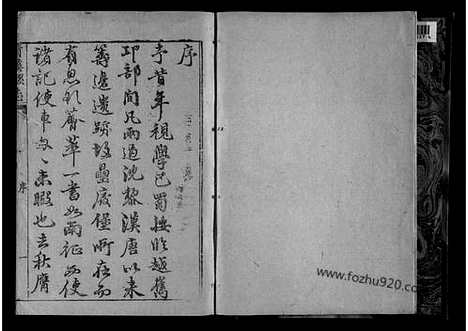 序
予昔年視學巴蜀按臨越嶲
邛部間凡兩過沈黎漢唐以来
籌邊遺跡故壘廢堡所在而
有思欲薈萃一書如南征西使
諸記使車匆匆未暇也去秋膺
序
一
www.fozhu920.com